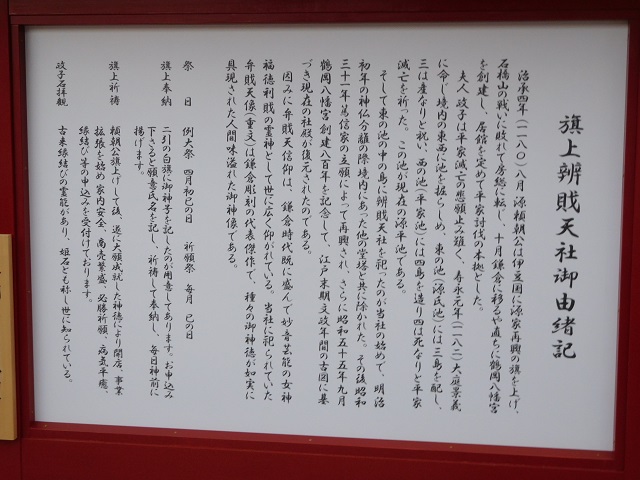 旗上辨戝天社御由緒記
治承四年(一一八〇)八月源頼朝公は伊豆国に源家再興の旗を上げ、
石橋山の戦いに敗れて房総に転し、十月鎌倉に移るや直ちに鶴岡八幡宮
を創建し、居館を定めて平家討伐の本拠とした。
夫人政子は平家滅亡の悲願止み難く、寿永元年(一一八二)大庭景義
に命じ境内の東西に池を掘らしめ、東の池(源氏池)には三島を配し、
三は産なりと祝い、西の池(平家池)には四島を造り四は死なりと平家
滅亡を祈った。この池が現在の源平池である。
そして東の池の中の島に辨戝天社を祀ったのが当社の始めで、明治
初年の神仏分離の際境内にあった他の堂塔と共に除かれた。その後昭和
三十一年篤信家の立願によって再興され、さらに昭和五十五年九月
鶴岡八幡宮創建八百年を記念して、江戸末期文政年間の古図に基
づき現在の社殿が復元されたのである。
因みに弁戝天信仰は、鎌倉時代既に盛んで妙音芸能の女神
福徳利戝の霊神として世に広く仰がれている。当社に祀られていた
弁戝天像(重文)は鎌倉彫刻の代表傑作で、種々の御神徳が如実に
具現された人間味溢れた御神像である。
祭日 例大祭 四月初巳の日 祈願祭 毎月 巳の日
旗上奉納 二引の白旗に御神号を記したのが用意してあります。お申込み
下さると願意氏名を記し、祈祷して奉納し、毎日神前に
揚げます。
旗上祈祷 頼朝公旗上げして後、遂に大願成就した神徳により開店、事業
拡張を始め家内安全、商売繁盛、必勝祈願、病気平癒、
縁結び等の申込みを受付けております。
政子石拝観 古来縁結びの霊能があり、姫石とも称し世に知られている。